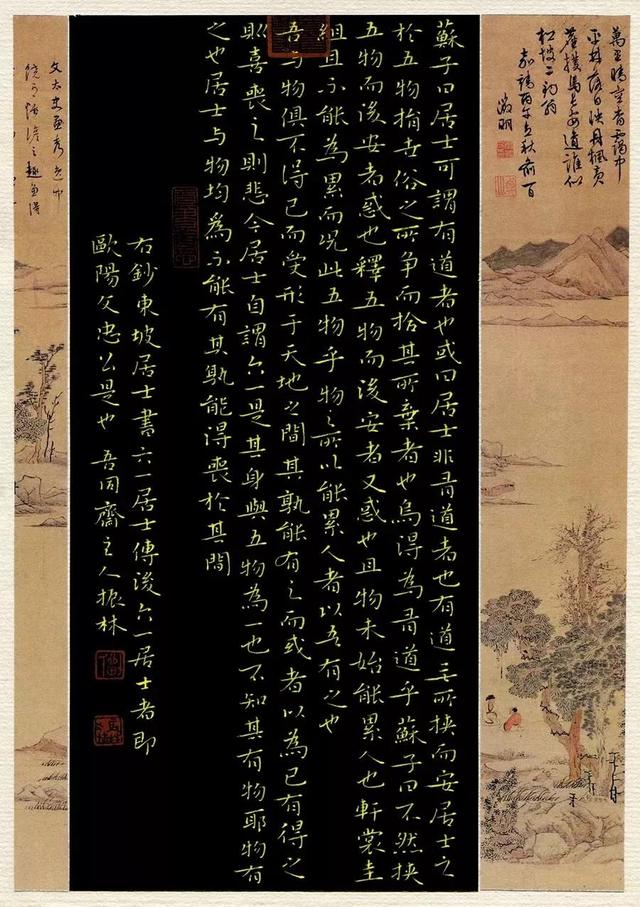 萬里晴空杳靄中
平林落日映丹楓黃
塵撲馬長安道誰似
松坡二釣翁
嘉靖丙午立秋前一日
徵明
蘇子曰居士可謂有道者也或曰居士非有道者也有道無所挾而安居士之
於五物捐世俗之所爭而拾其所棄者也烏得為有道乎蘇子曰不然挾
五物而後安者惑也釋五物而後安者又惑也且物未始能累人也軒裳圭
組且不能為累而況此五物乎物之所以能累人者以吾有之也
吾與物俱不得已而受形于天地之間其孰能有之而或者以為己有得之
則喜喪之則悲今居士自謂六一是其身與五物為一也不知其有物耶物有
之也居士与物均為不能有其孰能得喪於其間
右鈔東坡居士書六一居士傳後六一居士者即
歐陽文忠公是也 吾同齋主人振林
文太史畫